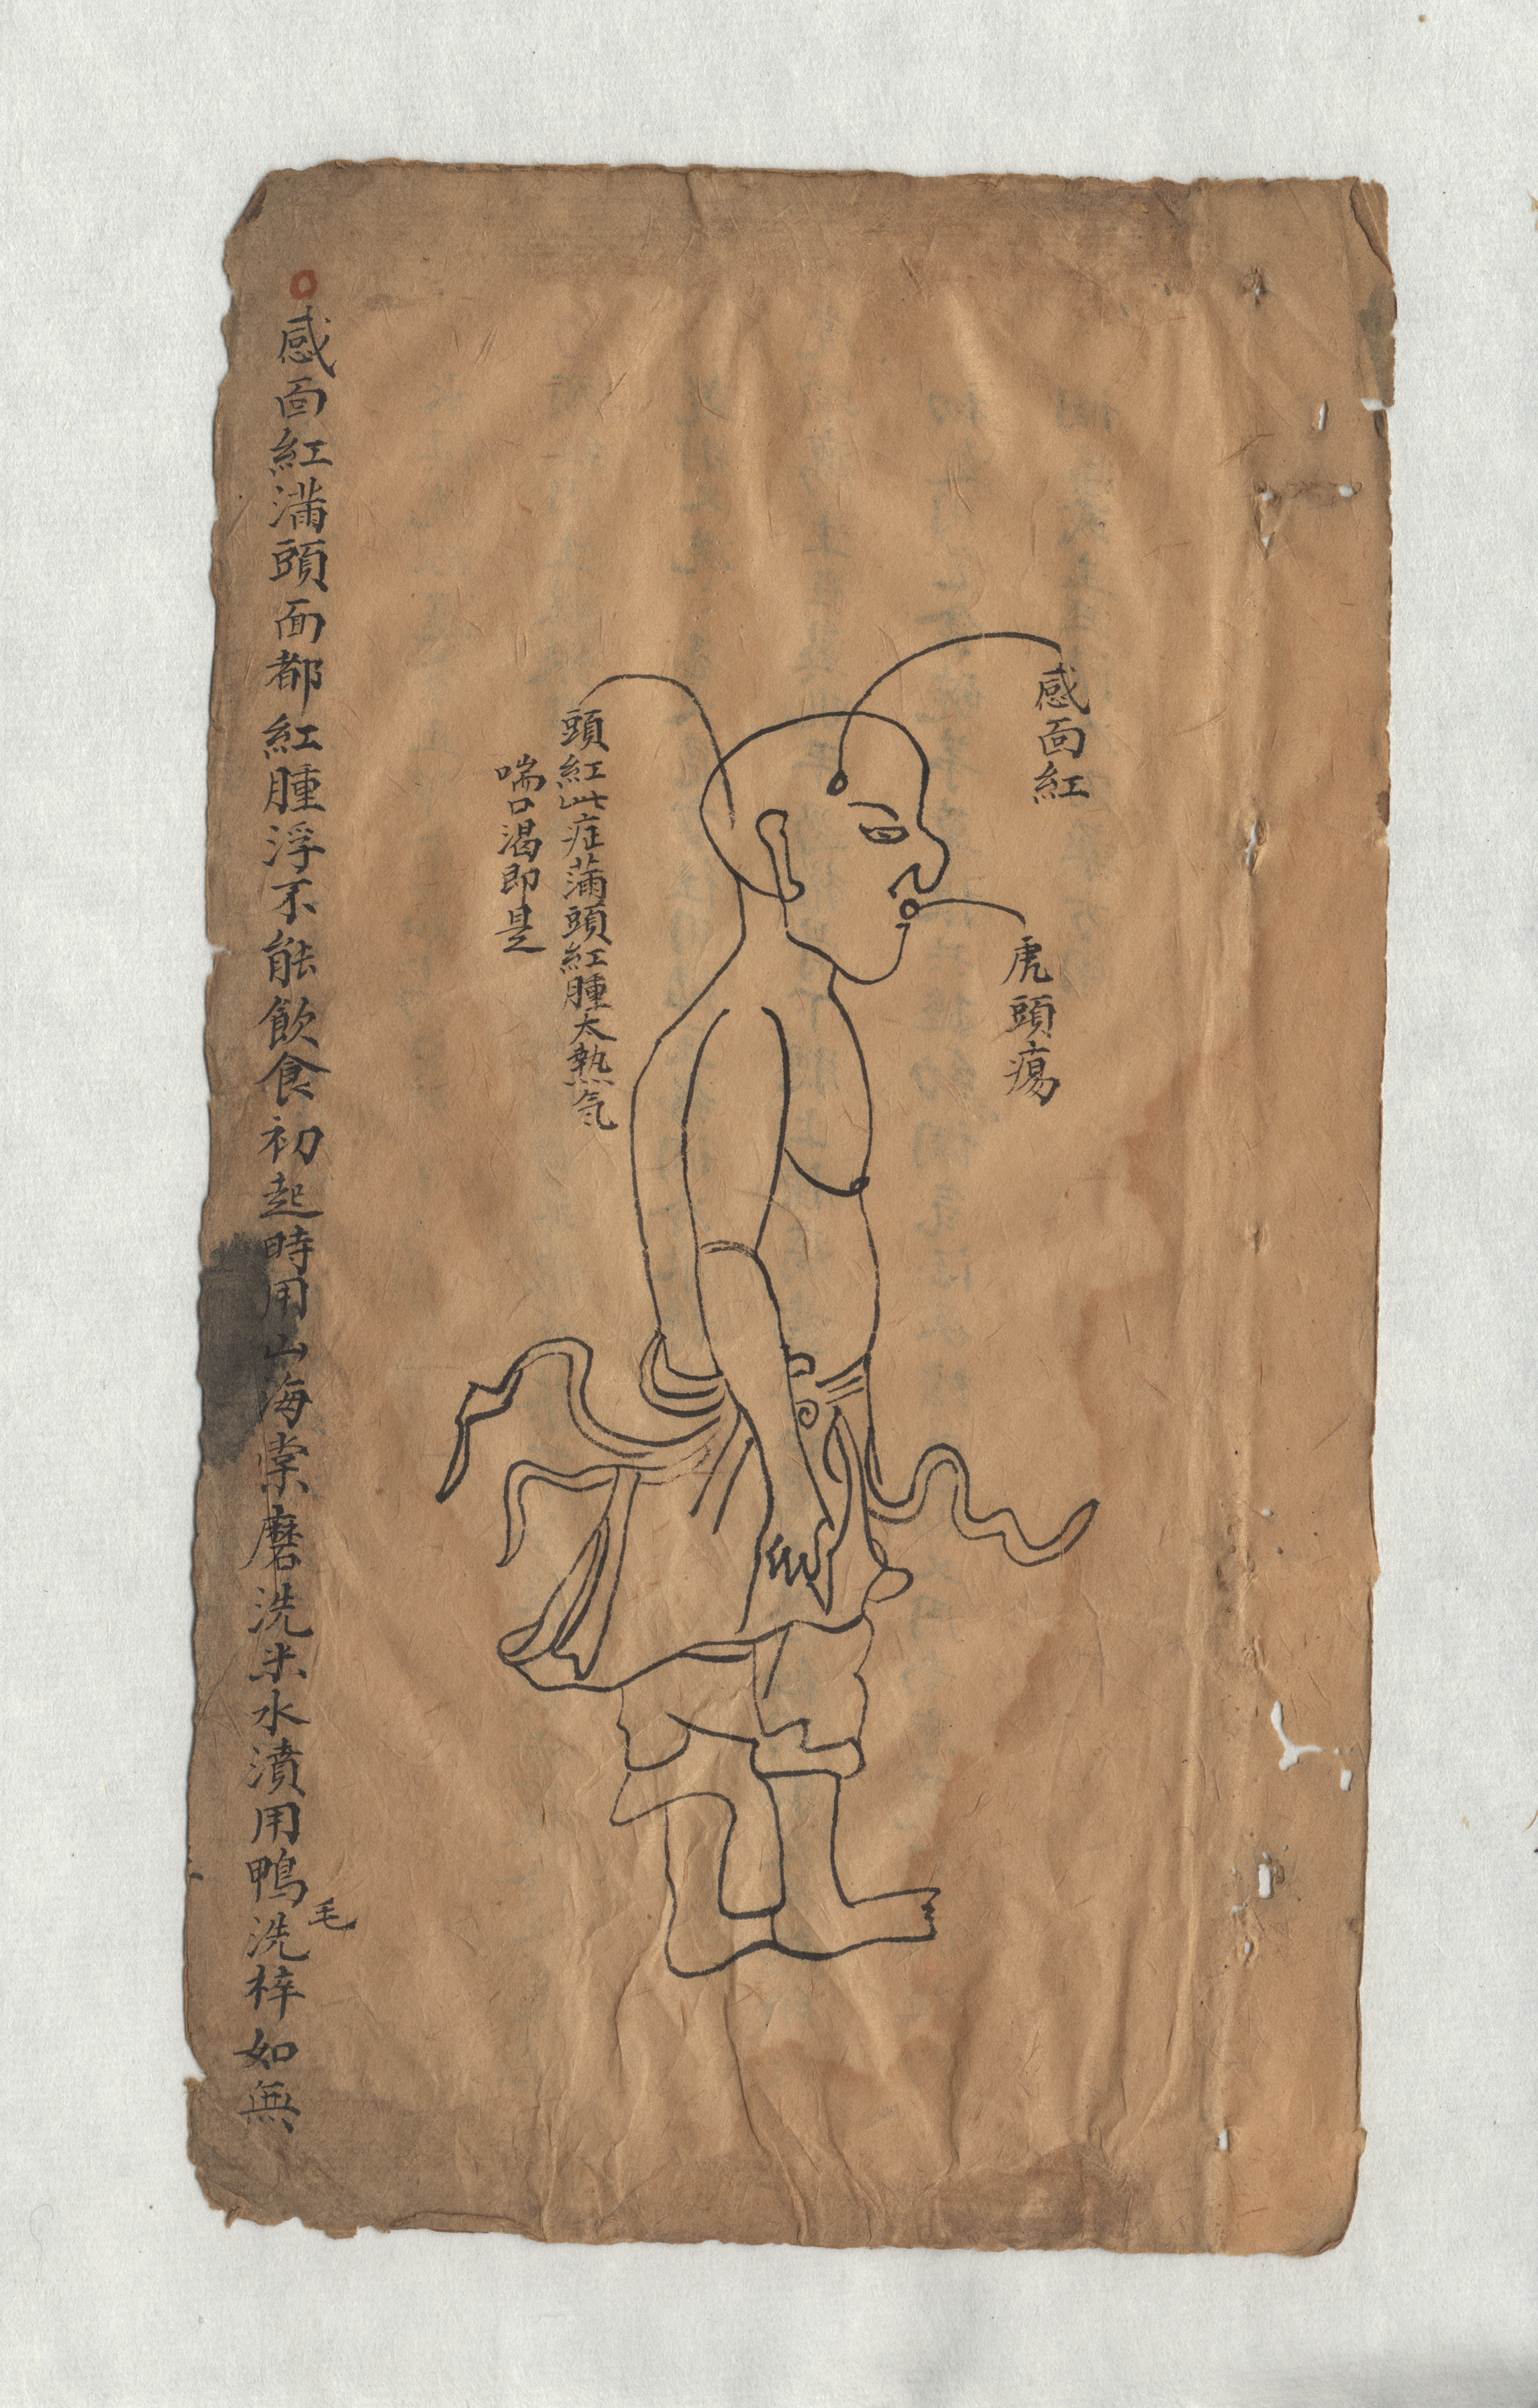 感面紅
虎頭瘍
頭紅此症蒲頭紅腫大熱气
喘口渴即是
感面紅滿頭面都紅腫浮不能飲食初起時用山海棠磨洗米水漬用鴨毛洗梓如無